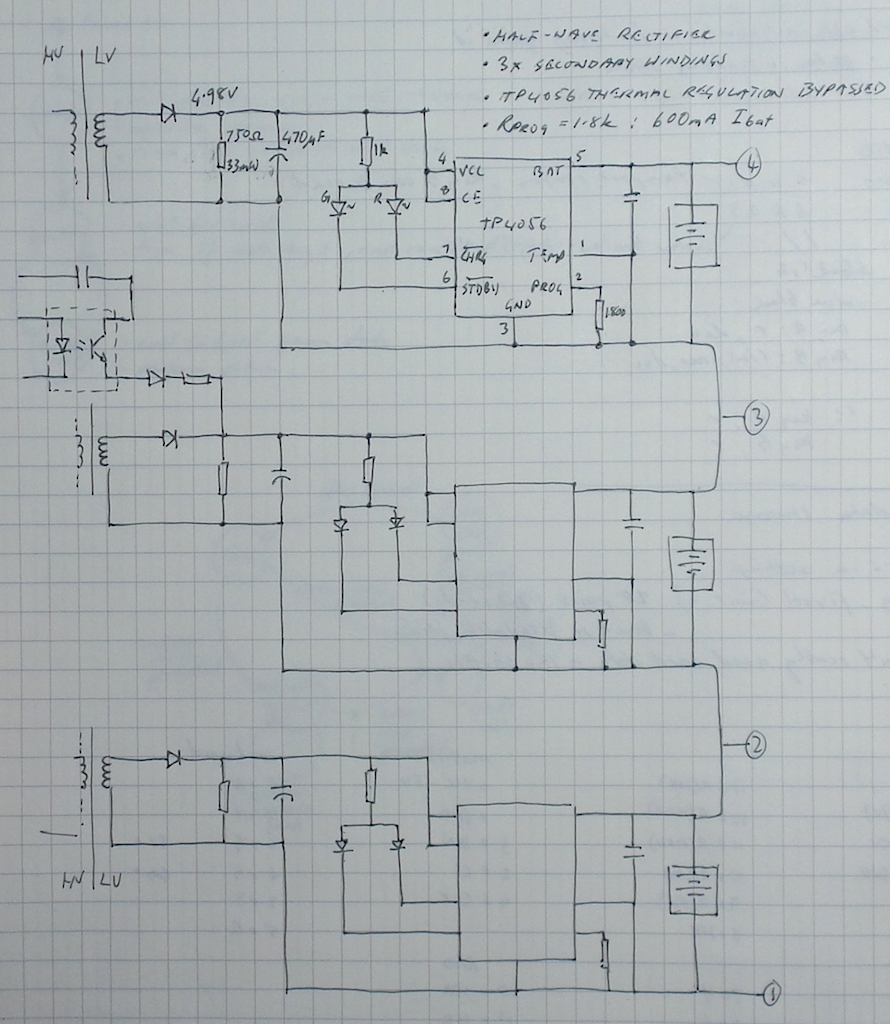 • HALF-WAVE RECTIFIER
• 3x SECONDARY WINDINGS
• TP4056 THERMAL REGULATION BYPASSED
• RPROG = 1.8k : 600mA Ibat
HV LV
4.98V
750Ω
33mW
470µF
1k
G
R
4 VCC
8 CE
BAT 5
4
TP4056
7 CHRG
TEMP 1
6 STDBY
PROG 2
GND
3
1800
3
2
HV LV
1